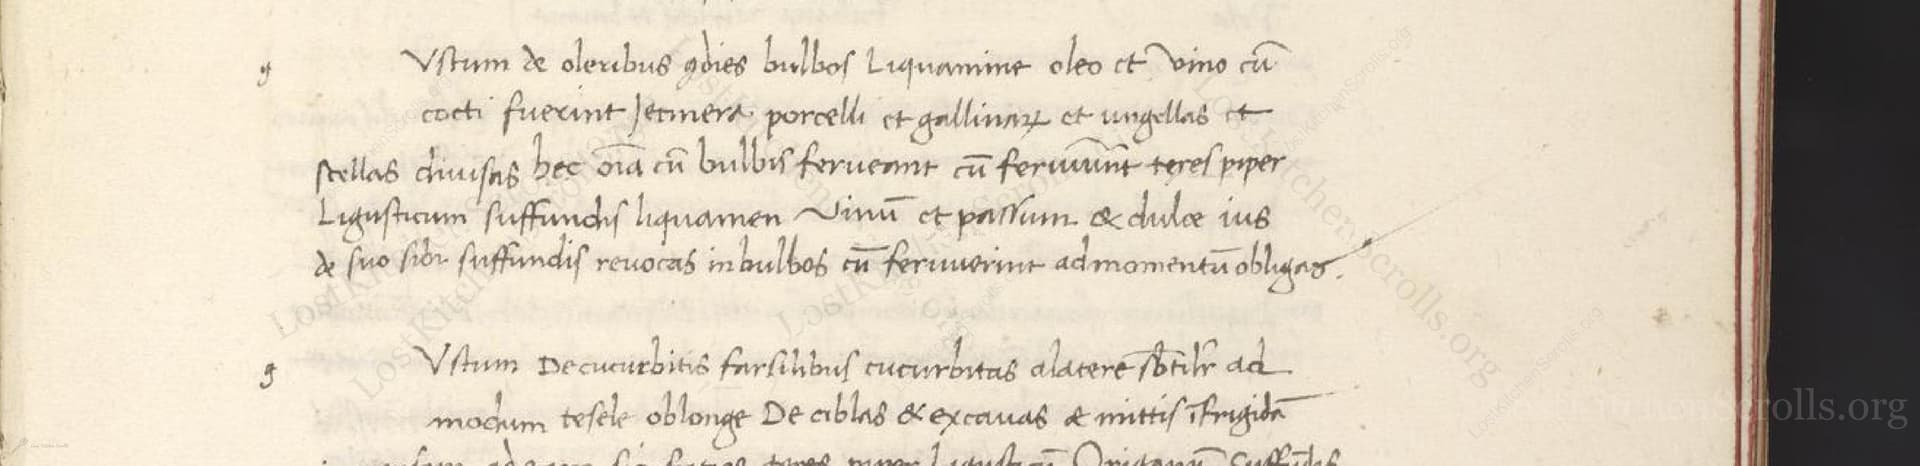 g Vstum de oleribus ꝯdies bulbos Liquamine oleo et vino cū
cocti fuerint Jecinera porcelli et gallinaꝝ et ungellas et
scellas divisas hec oīa cū bulbis ferveant cū feruūnt teres piper
Ligusticum suffundis liquamen vinū et passum & dulce ius
de suo sibi suffundis revocas in bulbos cū feruuerint ad momentū obligas.
g Vstum De cucurbitis farsilibus cucurbitas a latere ad
modum tesele oblonge De ciblas & excavas & mittis ī frigidā
teres piper Ligusticū Origanū Suffūdis
LostKitchenScrolls.org